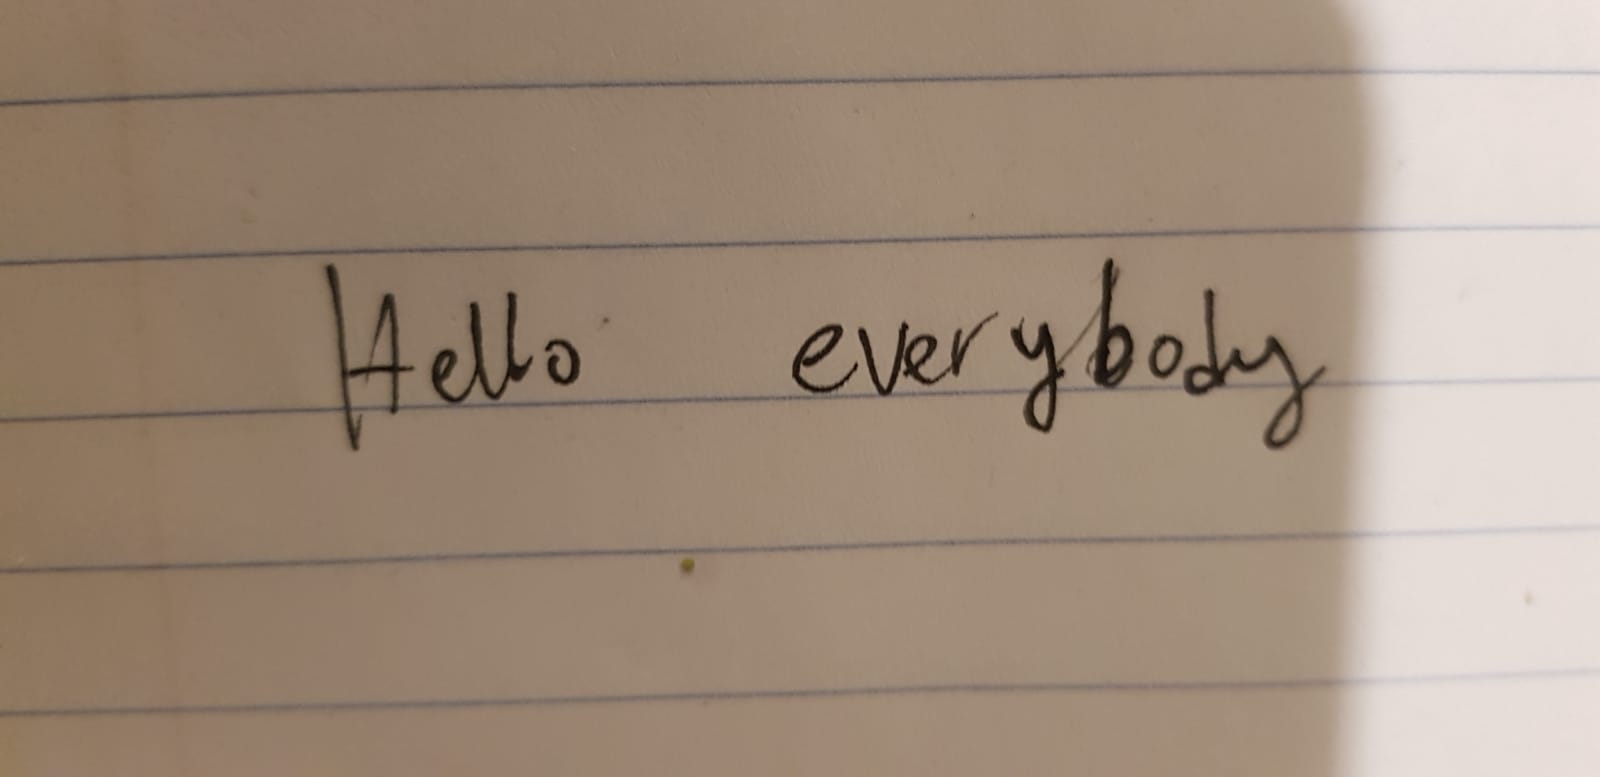 Hello everybody